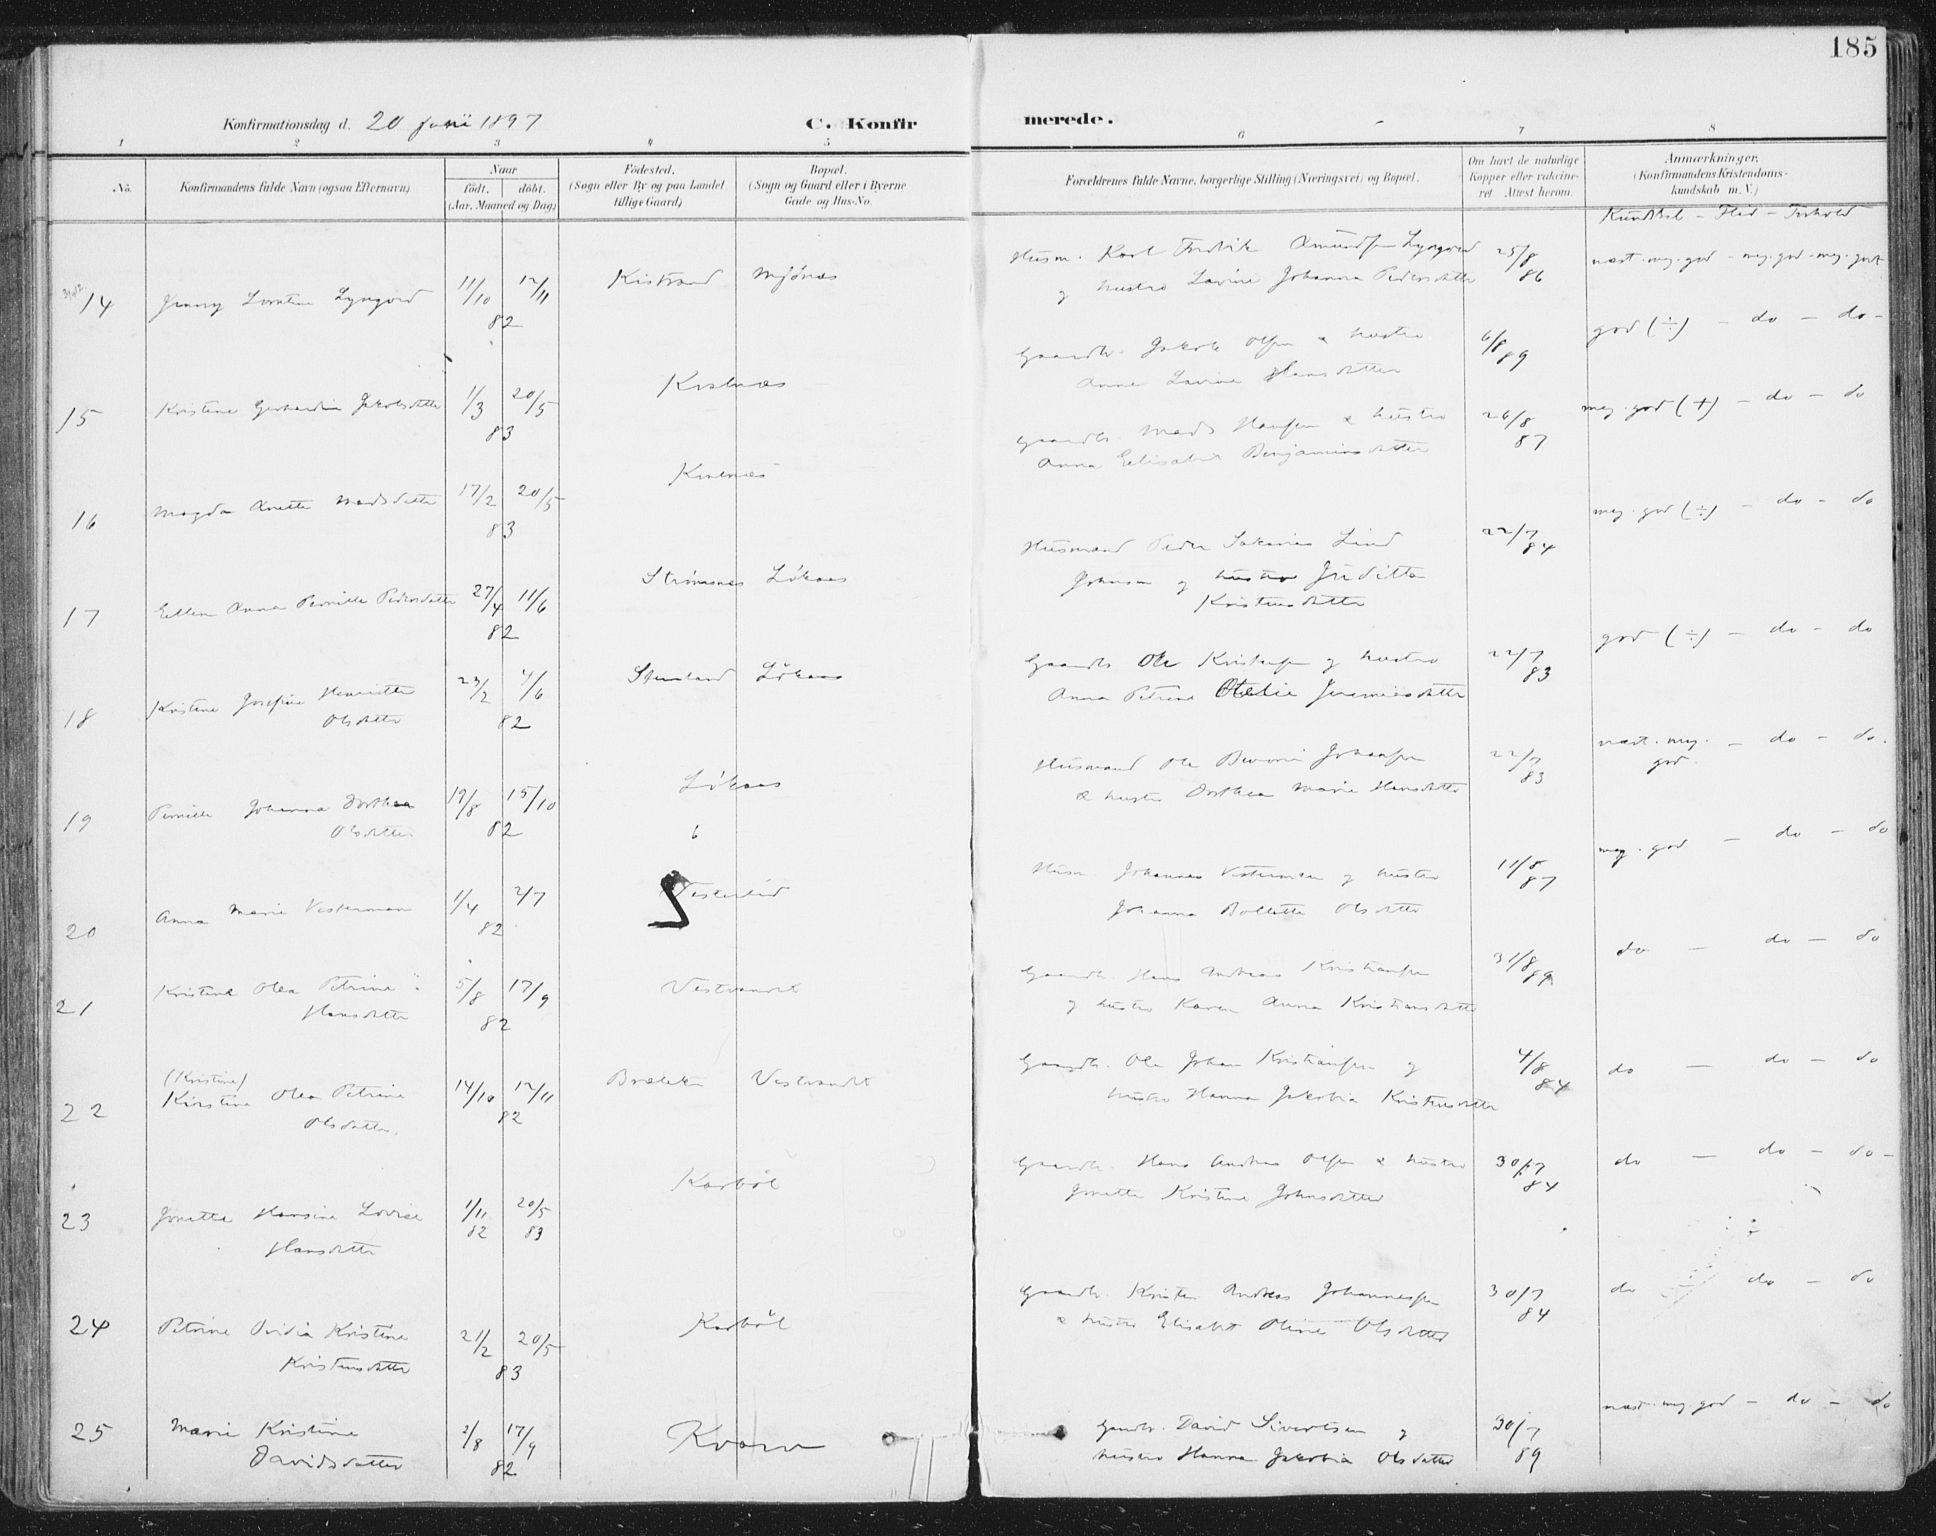 185
Konfirmationsdag d. 20 juni 1897
C. Konfirmerede.
1 2 3 4 5 6 7 8
No.
Konfirmandens fulde Navn (ogsaa Efternavn)
Naar
födt. döbt.
(Aar, Maaned og Dag)
Födested.
(Sogn eller By og paa Landet
tillige Gaard)
Bopæl.
(Sogn og Gaard eller i Byerne
Gade og Hus-No.
Forældrenes fulde Navne, borgerlige Stilling (Næringsvei) og Bopæl.
Om havt de naturlige
Kopper eller vakcine-
ret Attest herom.
Anmærkninger.
(Konfirmandens Kristendoms-
kundskab m. V.)
Kundskab - Flid - Forhold
14 Jenny Lyngved 11/10 12/11 82 Kistrand Mjönes
Husm. Karl Fredrik Amundsen Lyngved 25/8 86 næst. meg. god - meg. god - meg. godt
og hustro Lavine Johanna Pedersdatter
15 Kristine Gerhardine Jakobsdatter 1/3 20/5 83 Kvalnæs
Gaardbr. Jakob Olsen & hustro 6/8 89 god (÷) - do - do -
Anne Lavine Hansdatter
16 Magda Anette Madsdatter 17/2 20/5 83 Kvalnæs
Gaardbr. Mads Hansen & hustro 26/8 87 meg. god (+) - do - do
Anna Elisabet Benjaminsdatter
17 Ellen Anna Pernille Pedersdatter 27/4 11/6 82 Strömsnes Lökaas
Husmand Peder Sakarias Lind 22/7 84 meg. god (÷) - do - do
Johnsen og hustro Juditta
Kristensdatter
18 Kristine Josefine Henriette 23/2 4/6 82 Lökaas
Olsdatter
Gaardb. Ole Kristensen og hustro 22/7 83 god (÷) - do - do
Anna Petrine Otelie Jeremiasdatter
19 Pernille Johanna Dorthea 19/8 15/10 82 Lökaas
Olsdatter 6
Husmand Ole Benoni Johansen 22/7 83 næst. meg. god. - do - do.
& hustro Dorthea Marie Hansdatter
20 Anna Marie Vesterman 1/4 2/7 82 Vesterlid
Husm. Johannes Vesterman og hustro 11/8 87 meg. god - do - do
Johanna Bollette Olsdatter
21 Kristine Olea Petrine 5/8 17/9 82 Vestvandet
Hansdatter
Gaardb. Hans Andreas Kristiansen 31/8 89 do - do - do
og hustro Karen Anna Kristiansdatter
(Kristine)
22 Kirstine Olea Petrine 14/10 12/11 82 Vestvandet
Olsdatter.
Gaardb. Ole Johan Kristiansen og 4/8 84 do - do - do
hustro Hanna Jakobia Kristensdatter
23 Jonette Hansine Lovise 1/11 82 20/5 83 Karböl
Hansdatter
Gaardb. Hans Andreas Olsen & hustro 30/7 84 do - do - do -
Jonette Kristine Johnsdatter
24 Petrine Ovidia Kristine 21/2 20/5 83 Karböl
Kristensdatter
Gaardb. Kristen Andreas Johannessen 30/7 84 do do - do
& hustro Elisabet Oline Olsdatter
25 Marie Kristine 2/8 17/9 82 Kvarv
Davidsdatter
Gaardb. David Sivertsen og 30/7 89 næst. meg. god - do - do
hustro Hanna Jakobia Olsdatter